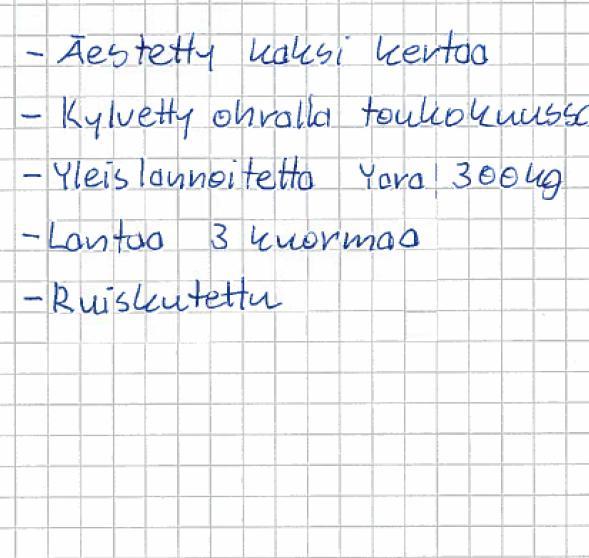 - Äestetty kaksi kertaa
- Kylvetty ohralla toukokuussa
- Yleislannoitetta Yara! 300kg
- Lantaa 3 kuormaa
- Ruiskutettu